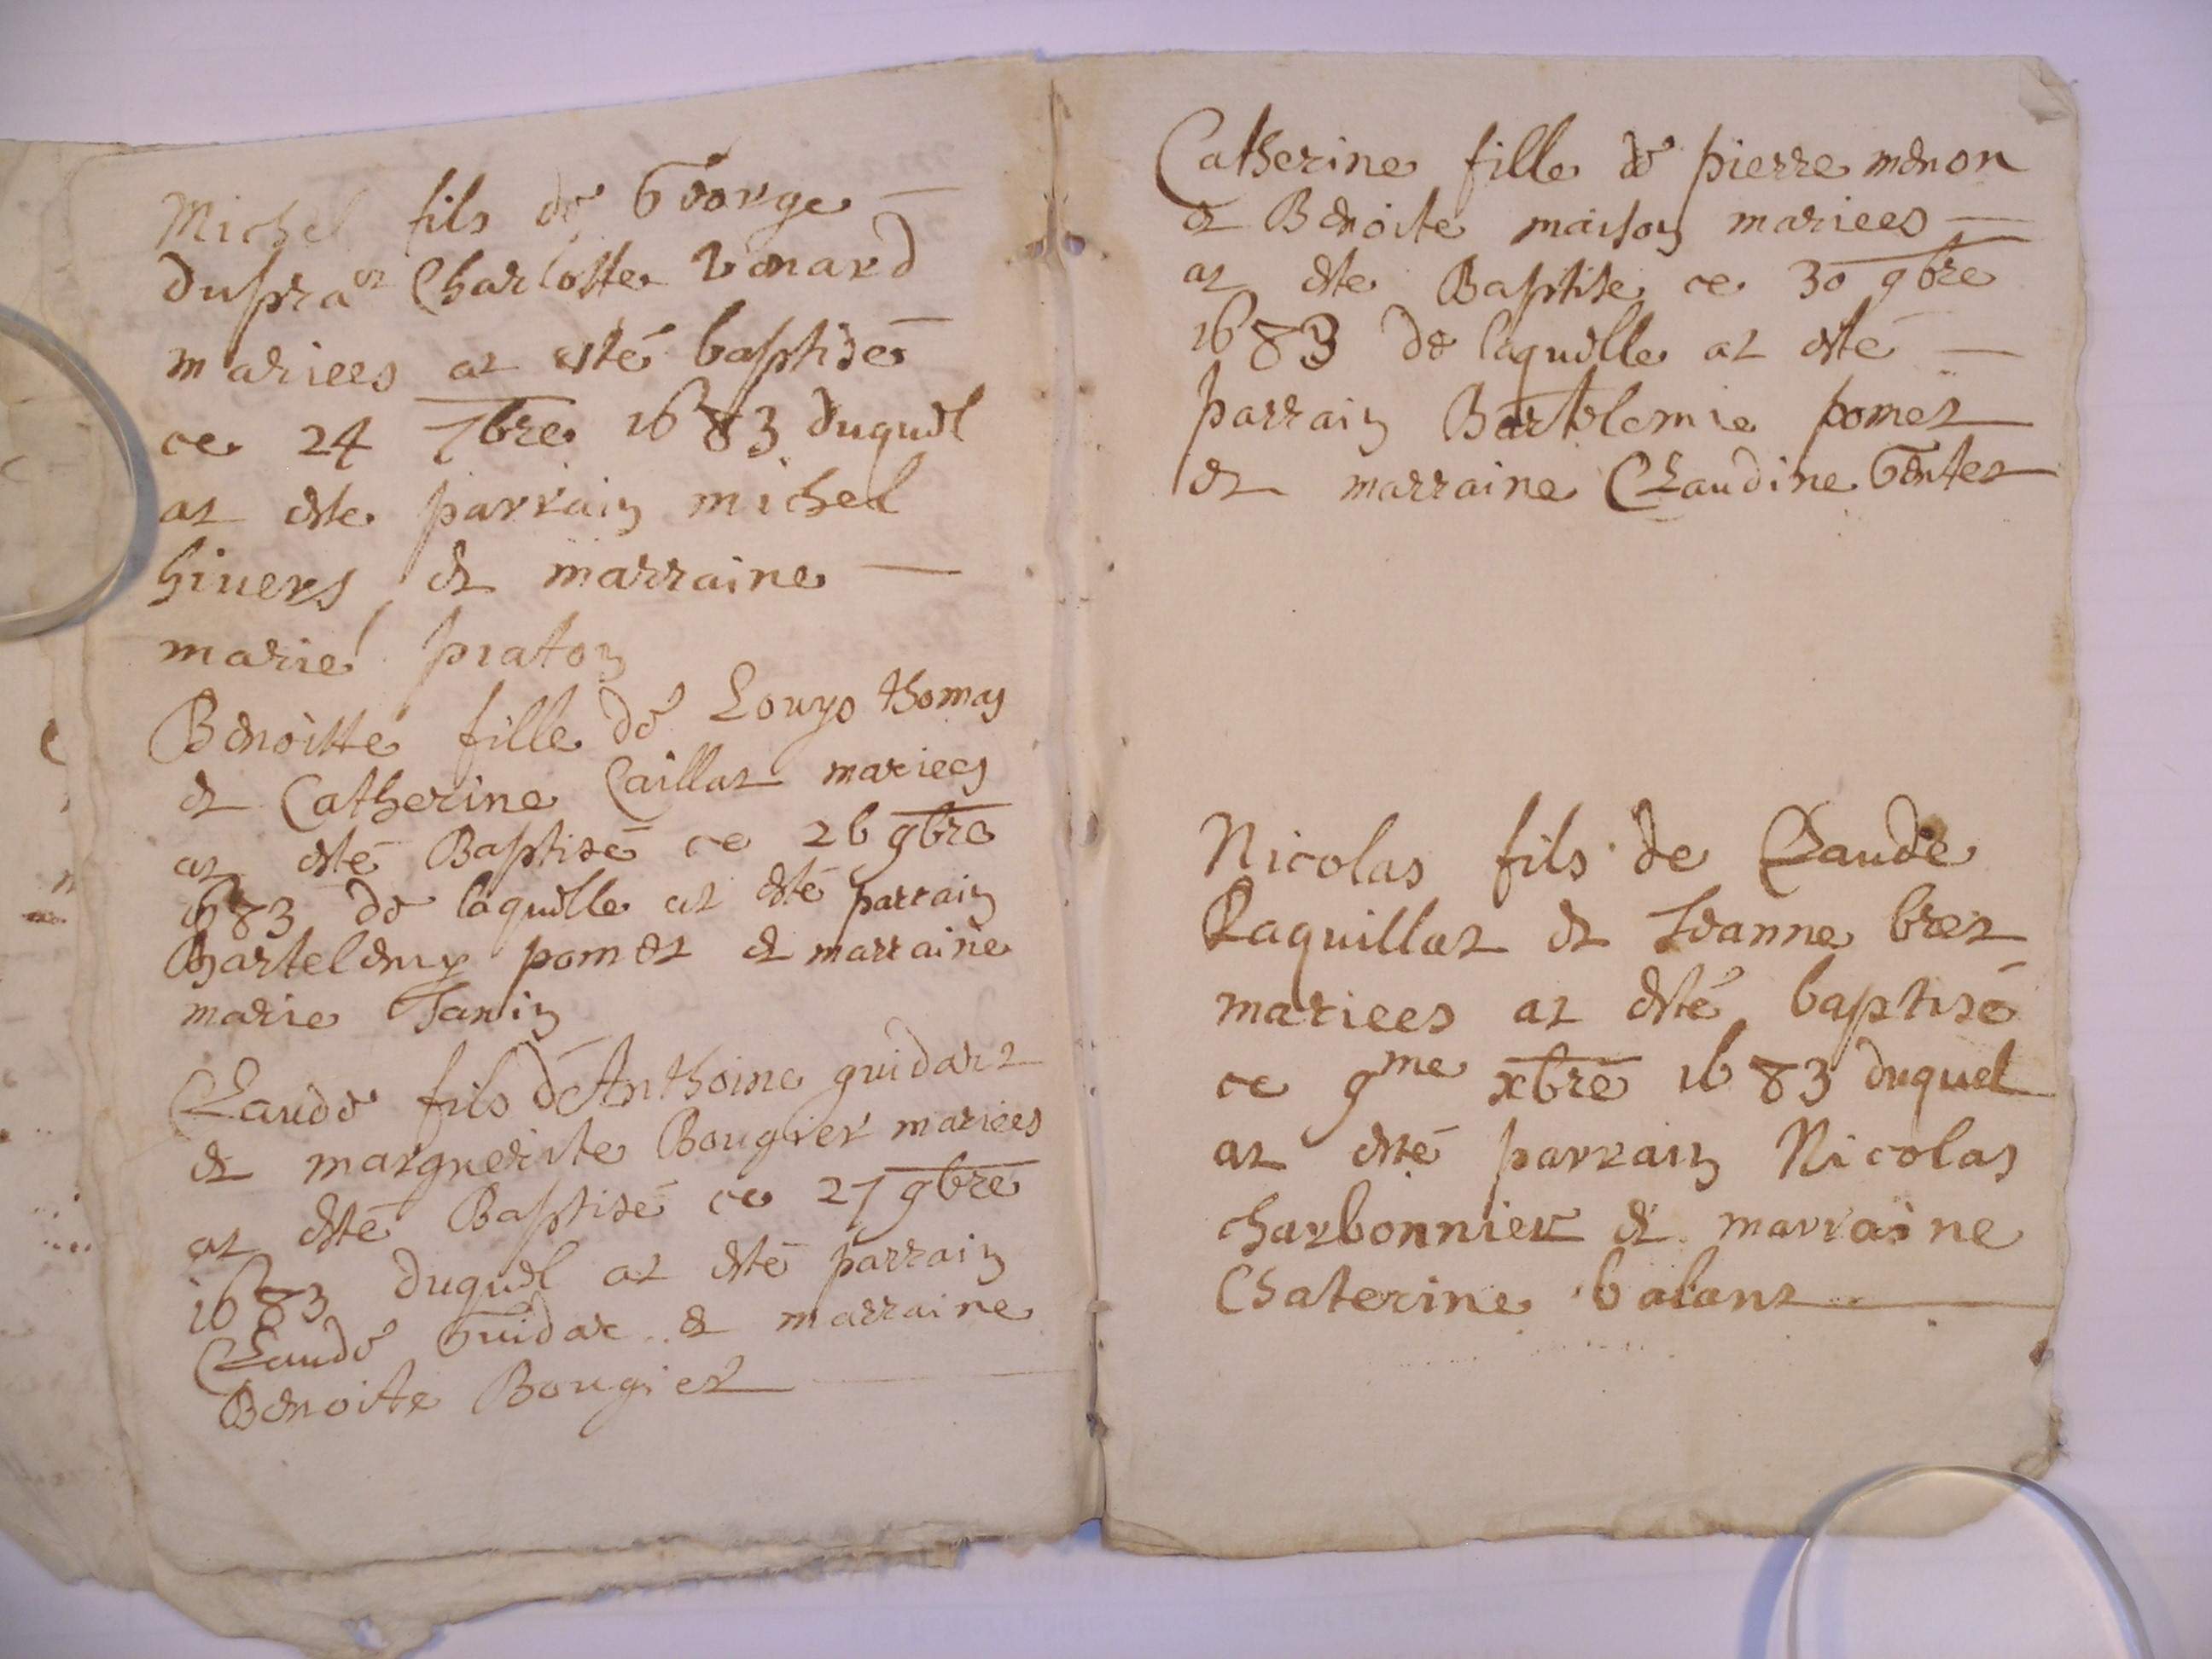 Michel fils de George
Dupra et Charlotte Venard
mariees at esté baptisé
ce 24 7bre 1683 duquel
at este parrain michel
hivers et marraine
marie praton
Benoitte fille de Louys thomas
et Catherine Caillat mariees
at esté Baptisé ce 26 9bre
1683 de laquelle at esté parrain
Bartelemy pomet et marraine
marie Janin
Claude fils d'Anthoine guidart
et marguerite Bougier mariees
at esté Baptisé ce 27 9bre
1683 duquel at esté parrain
Claude Guidar et marraine
Benoite Bougier
Catherine fille de pierre menon
et Benoite maison mariees
at este Baptise ce 30 9bre
1683 de laquelle at esté
parrain Bartolemie pomet
et marraine Claudine Gentet
Nicolas fils de Claude
Raquillat et Jeanne bret
mariees at esté baptisé
ce 9me xbre 1683 duquel
at esté parrain Nicolas
charbonnier et marraine
Chaterine balant